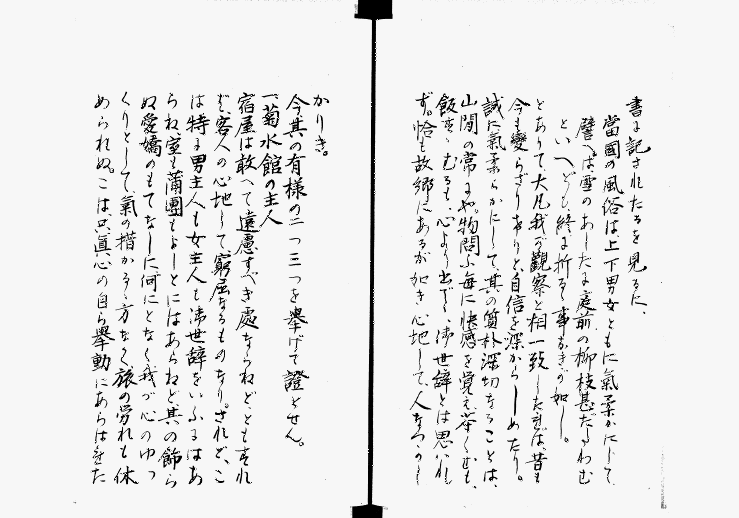 書に記されたるを見るに、
當國の風俗は、上下男女ともに氣柔かにして
譬へば雪のあしたに庭前の柳枝甚だたわむ
といへども、終に折るゝ事なきが如し。
とありて大凡我が觀察と相一致したれば、昔も
今も變らざりけりと、自信を深からしめたり。
誠に氣柔らかにして、其の質朴深切なることは、
山間の常にや。物問ふ毎に快感を覺え、茶くむも、
飯をすゝむるも、心より出でゝ、御世辞とは思はれ
ず。恰も故郷にあるが如き心地して、人なつかし
かりき。
今其の有様の二つ三つを擧げて證とせん。
一、菊水館の主人
宿屋は敢へて遠慮すべき處ならねど、ともすれ
ば、客人の心地して、窮屈なるものなり。されど、こ
は特に男主人も女主人も御世辞をいふにはあ
らね室も蒲團もよしとにはあらねど、其の飾ら
ぬ愛嬌のもてなしに、何にとなく我が心のゆつ
くりとして、氣の措かるゝ方なく、旅の労れも休
められぬ。こは只眞心の自ら擧動にあらはれた